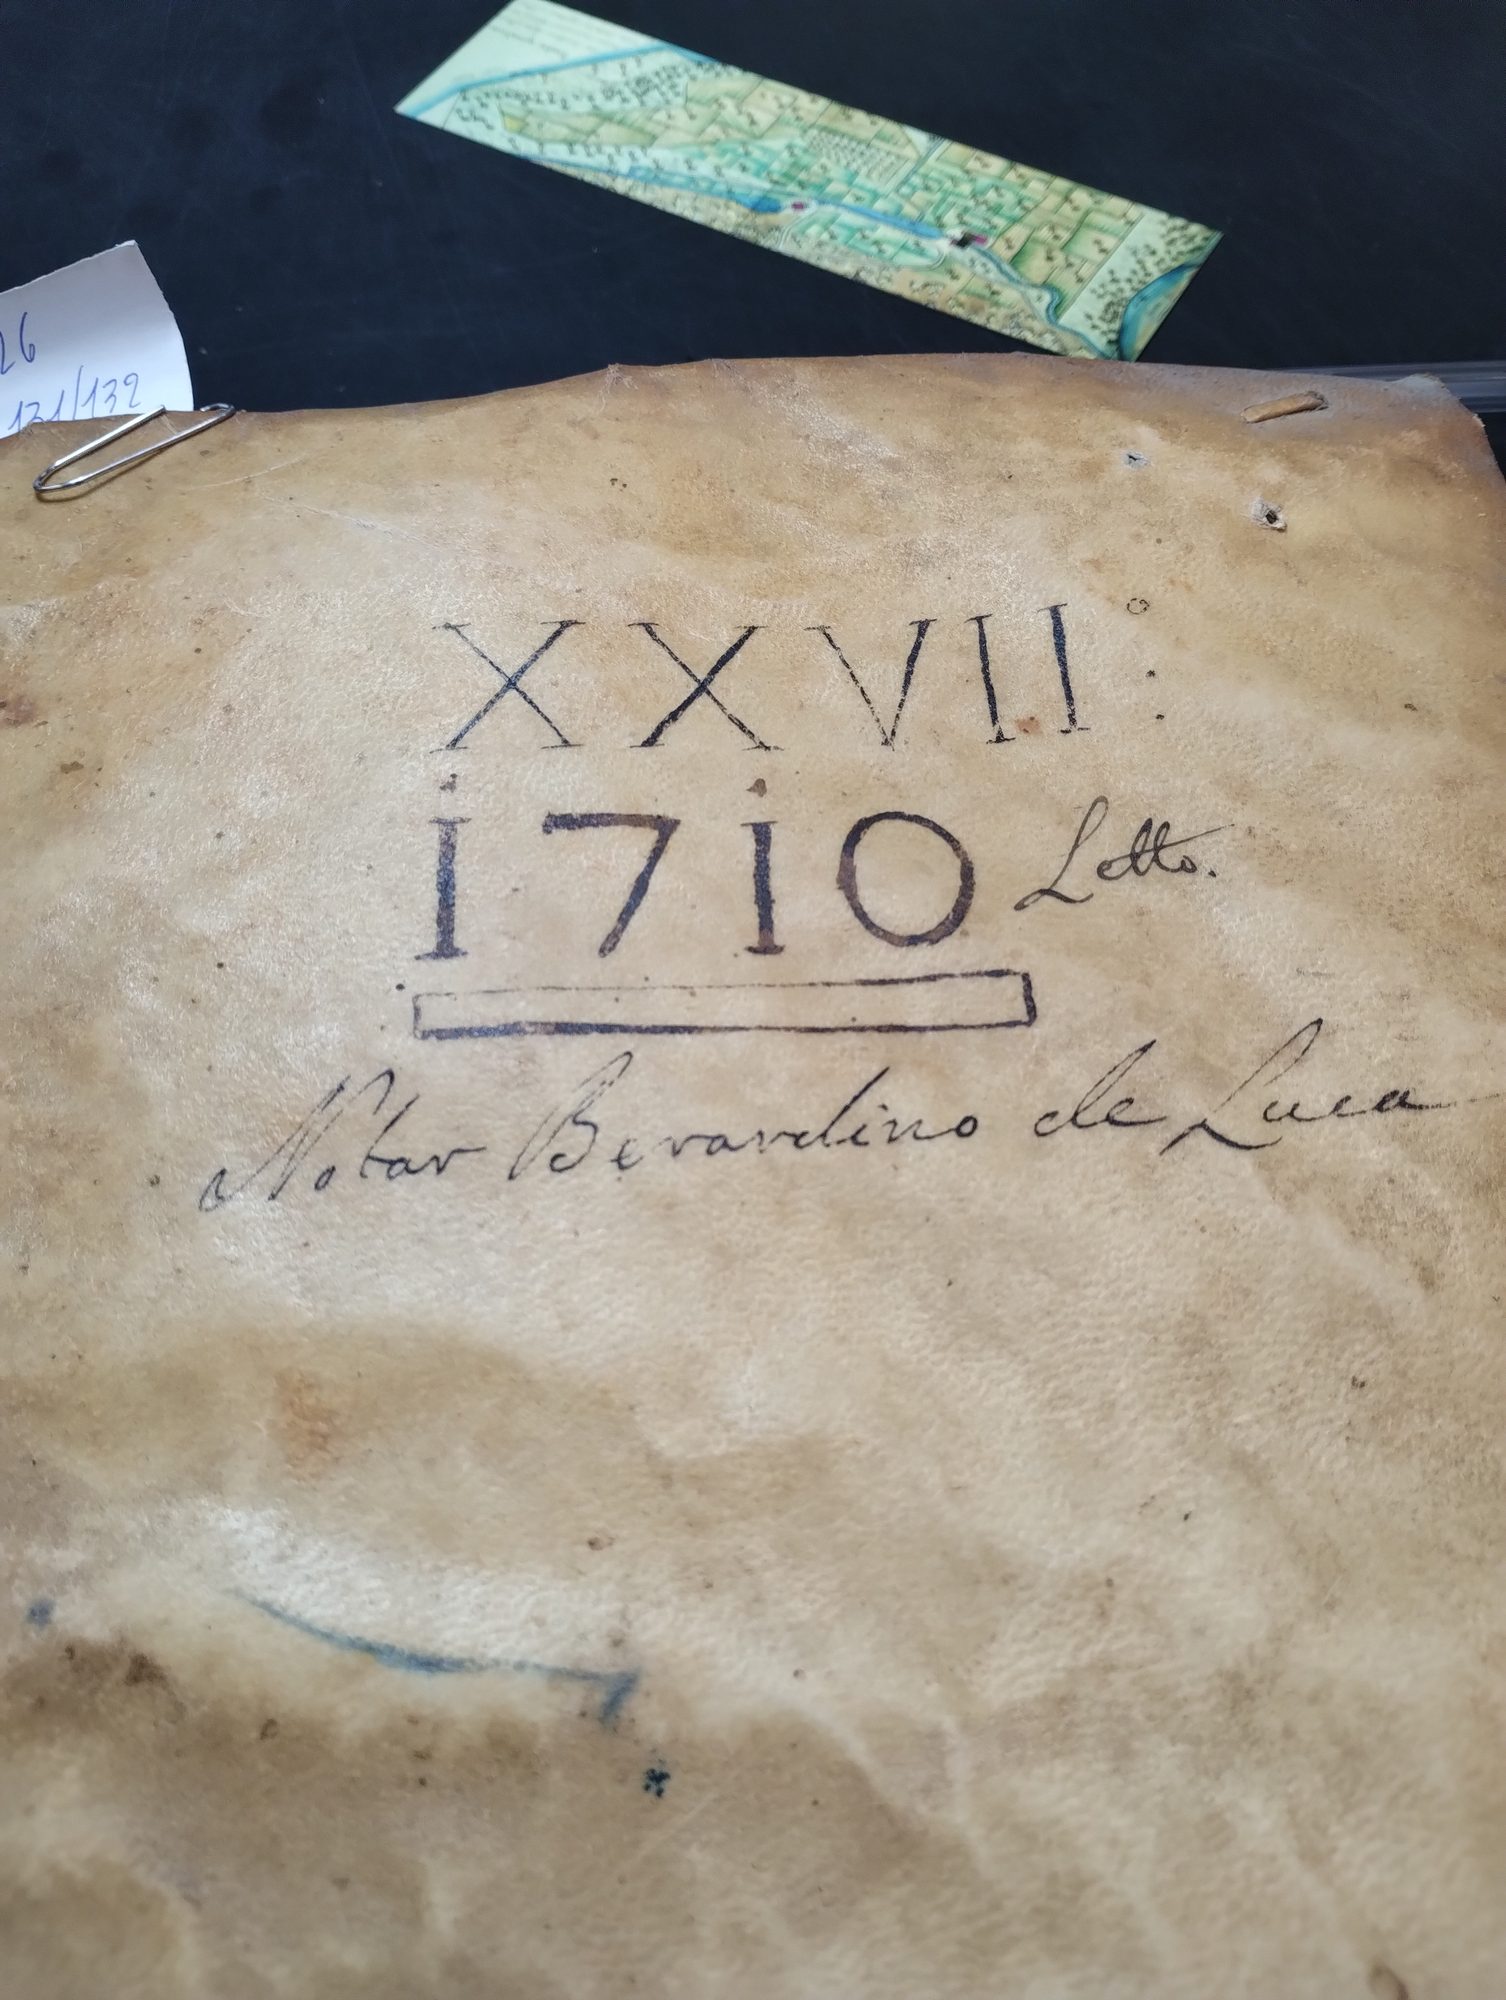 26
131/132
XXVII:°
1710 Letto.
Notar Berardino de Luca